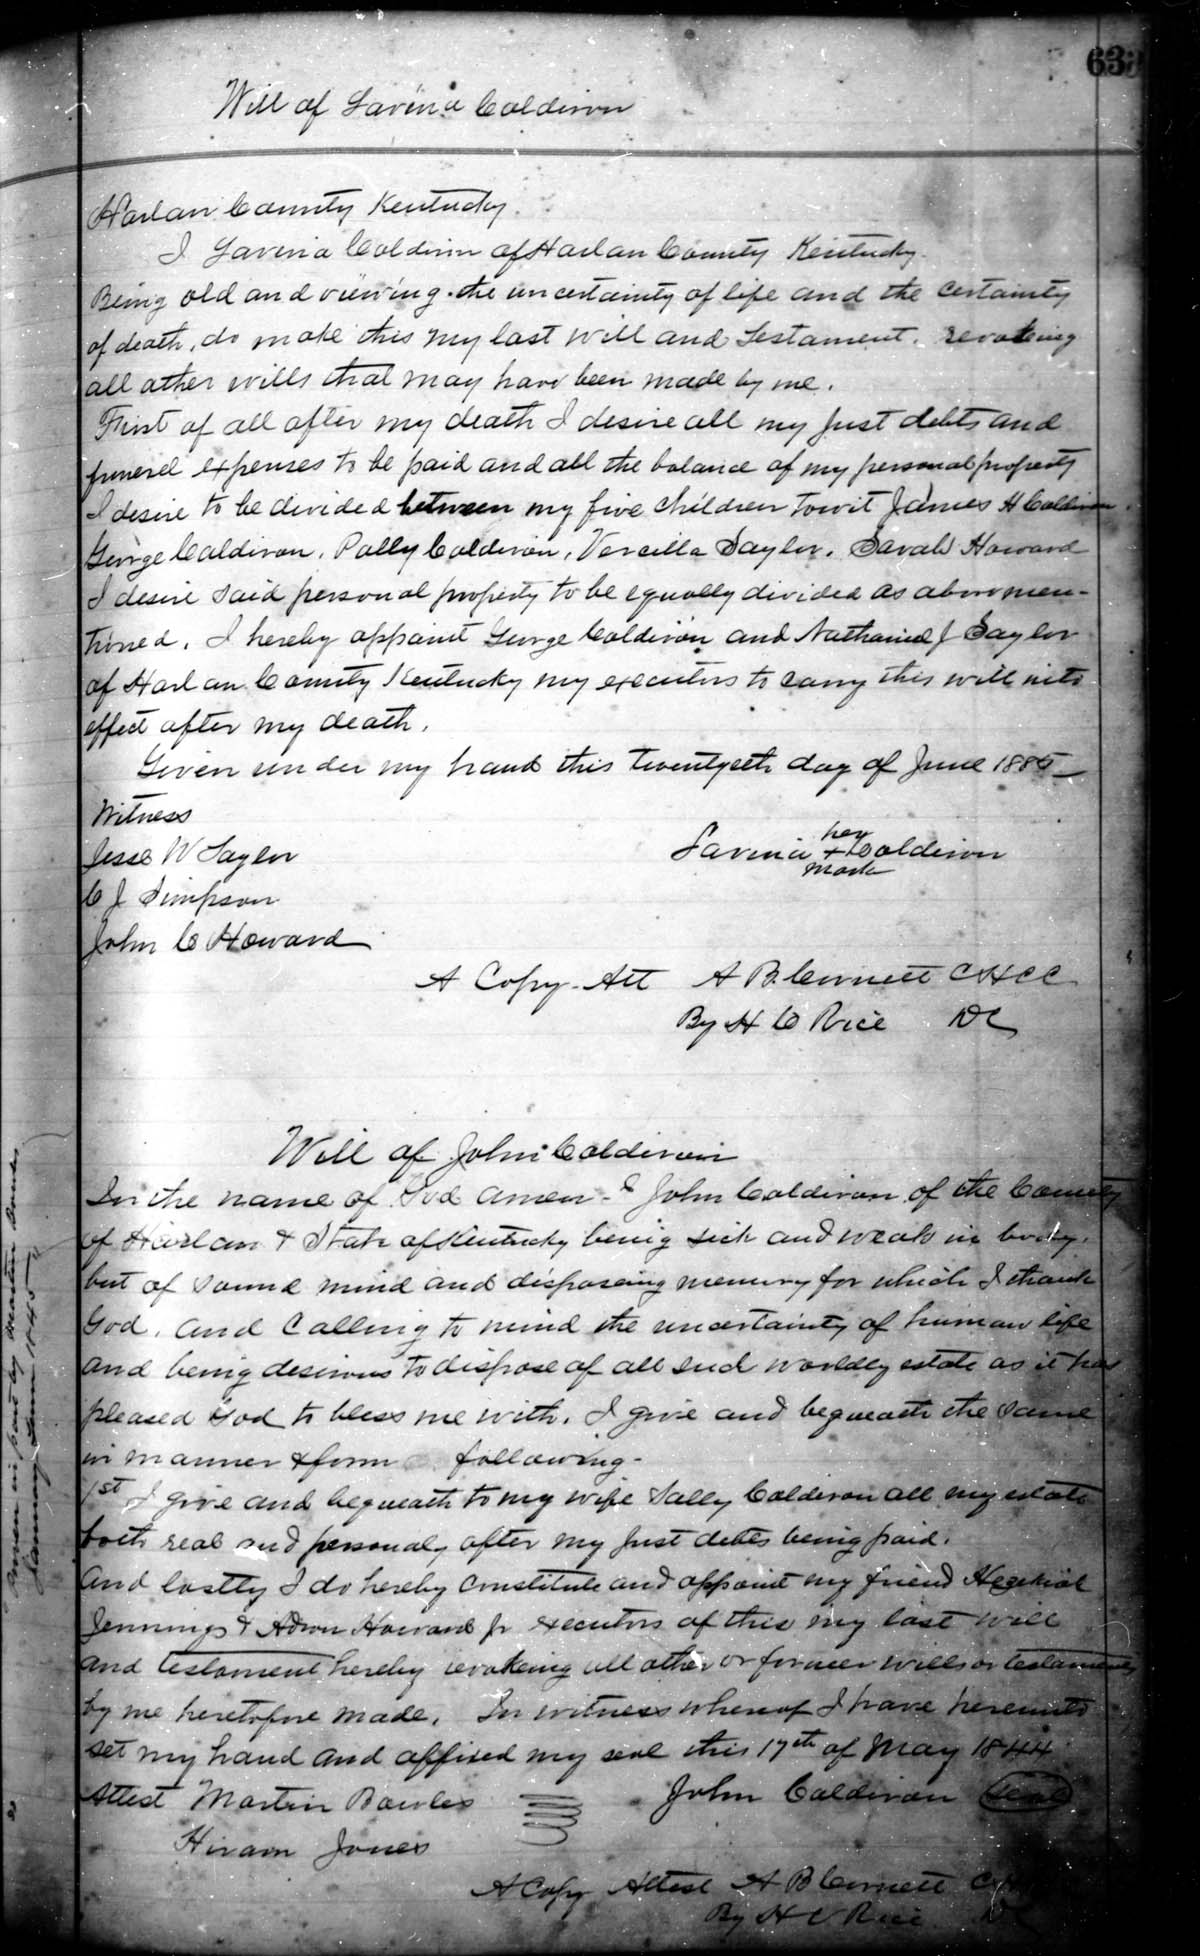 633
Will of Lavina Coldiron
Harlan County Kentucky.
I Lavina Coldiron of Harlan County Kentucky.
Being old and viewing the uncertainty of life and the certainty
of death, do make this my last will and testament. revokeing
all other wills that may have been made by me.
First of all after my death I desire all my just debts and
funeral expenses to be paid and all the balance of my personal property
I desire to be divided between my five children towit James H Coldiron.
George Coldiron, Polly Coldiron, Vercilla Saylor, Sarah Howard
I desire said personal property to be equally divided as above men-
tioned. I hereby appoint George Coldiron and Nathaniel J Saylor
of Harlan County Kentucky my executors to carry this will into
effect after my death.
Given under my hand this twentyeth day of June 1885
Witness
Jesse W Saylor
Lavina her + mark Coldiron
C J Simpson
John C Howard
A Copy. Att A B. Cornett C H C C
By H C Rice DC
Will of John Coldiron
In the name of God amen - I John Coldiron of the County
of Harlan & State of Kentucky being sick and weak in body.
but of sound mind and disposeing memory for which I thank
God. and Calling to mind the uncertainty of human life
and being desirous to dispose of all such worldly estate as it has
pleased God to bless me with. I give and bequeath the same
in manner & form following-
1st I give and bequeath to my wife Sally Coldiron all my estate
both real and personaly after my just debts being paid.
And lastly I do hereby constitute and appoint my friend Hezekiah
Jennings & Adron Howard Jr executors of this my last will
and testament hereby revokeing all other or former wills or testaments
by me heretofore made. In witness whereof I have hereunto
set my hand and affixed my seal this 17th of May 1844
Attest Martin Bowles John Coldiron Seal
Hiram Jones
A Copy Attest A B Cornett
By H C Rice DC
Proven in part by Martin Bowles
January Term 1845